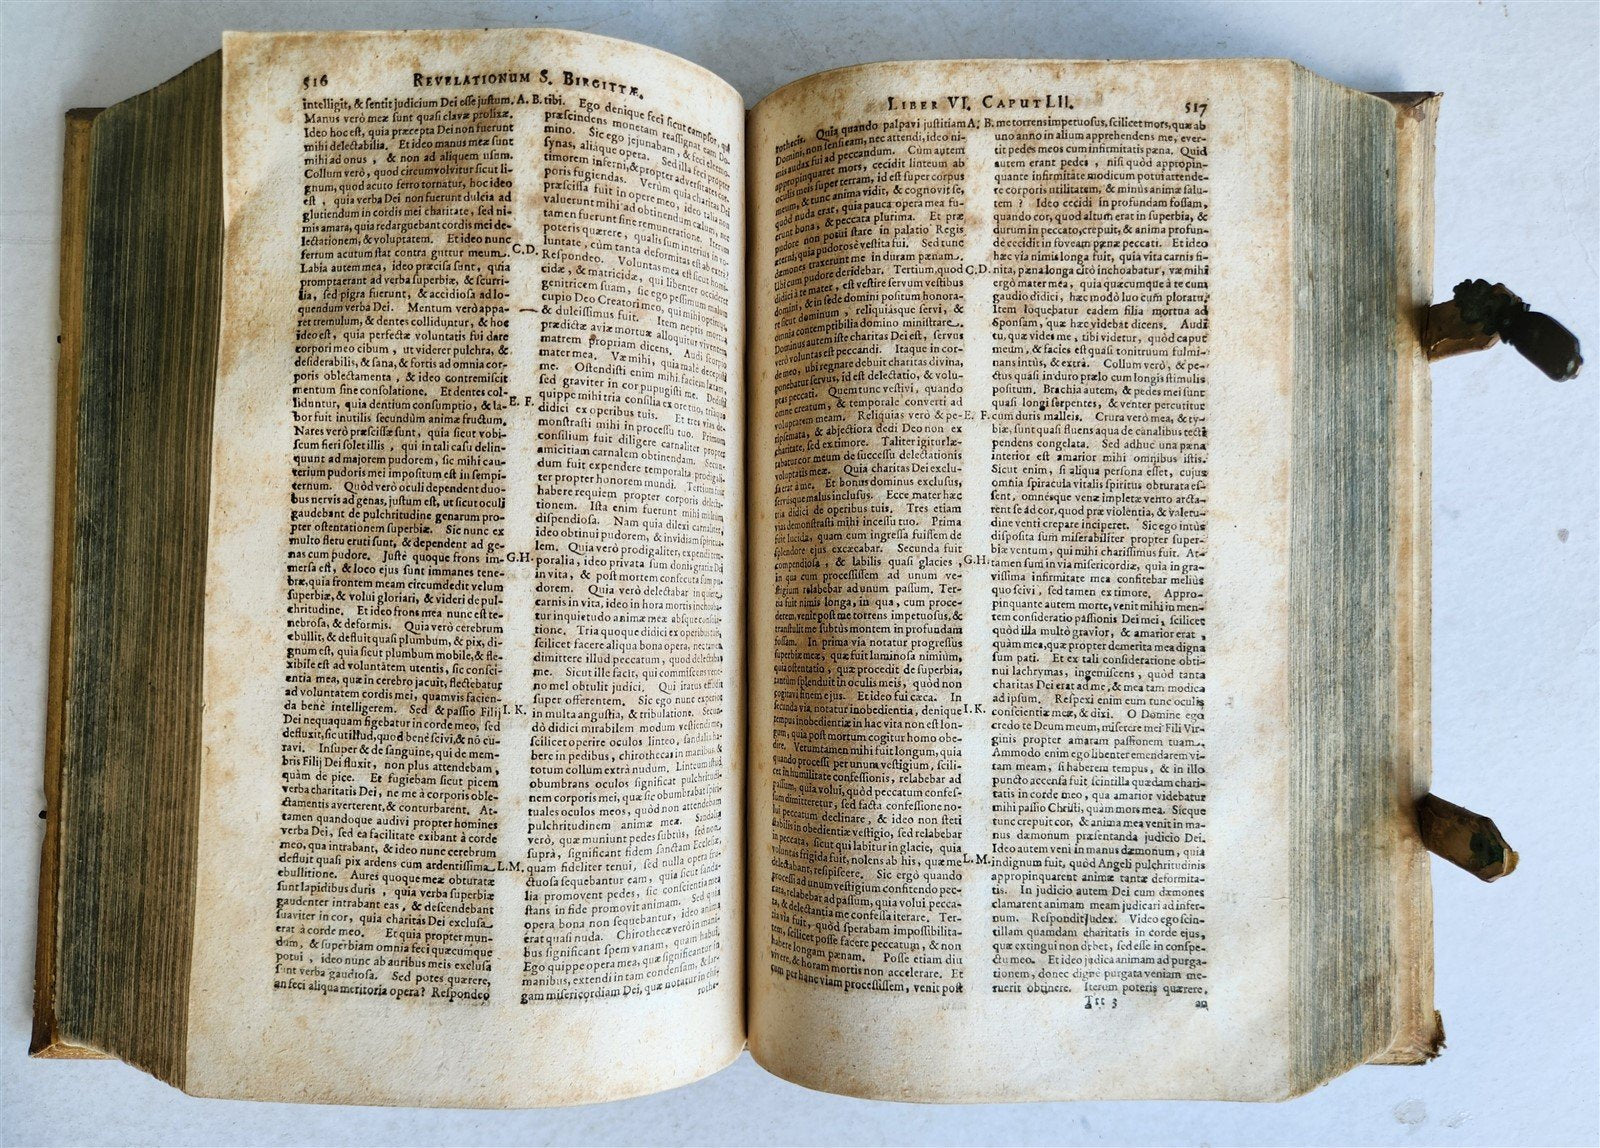 516
REVELATIONUM S. BIRGITTÆ.
intelligit, & sentit judicium Dei esse justum.
Manus verò meæ sunt quasi clavæ prolixæ.
Ideo hoc est, quia præcepta Dei non fuerunt
mihi delectabilia. Et ideo manus meæ sunt
mihi ad onus, & non ad aliquem usum.
Collum verò, quod circumvolvitur sicut li-
gnum, quod acuto ferro tornatur, hoc ideo
est, quia verba Dei non fuerunt dulcia ad
glutiendum in cordis mei charitate, sed ni-
mis amara, quia redarguebant cordis mei de-
lectationem, & voluptatem. Et ideo nunc
ferrum acutum stat contra guttur meum.
Labia autem mea, ideo præcisa sunt, quia
prompta erant ad verba superbiæ, & scurri-
lia, sed pigra fuerunt, & accidiosa ad lo-
quendum verba Dei. Mentum verò appa-
ret tremulum, & dentes colliduntur, & hoc
ideo est, quia perfectæ voluntatis fui dare
corpori meo cibum, ut viderer pulchra, &
desiderabilis, & sana, & fortis ad omnia cor-
poris oblectamenta, & ideo contremiscit
mentum sine consolatione. Et dentes col-
liduntur, quia dentium consumptio, & la-
bor fuit inutilis secundùm animæ fructum.
Nares verò præscissæ sunt, quia sicut vobi-
scum fieri solet illis, qui in tali casu delin-
quunt ad majorem pudorem, sic mihi cau-
terium pudoris mei impositum est in sempi-
ternum. Quòd verò oculi dependent duo-
bus nervis ad genas, justum est, ut sicut oculi
gaudebant de pulchritudine genarum pro-
pter ostentationem superbiæ. Sic nunc ex
multo fletu eruti sunt, & dependent ad ge-
nas cum pudore. Justè quoque frons im-
mersa est, & loco ejus sunt immanes tene-
bræ, quia frontem meam circumdedit velum
superbiæ, & volui gloriari, & videri de pul-
chritudine. Et ideo frons mea nunc est te-
nebrosa, & deformis. Quia verò cerebrum
ebullit, & defluit quasi plumbum, & pix, di-
gnum est, quia sicut plumbum mobile, & fle-
xibile est ad voluntatem utentis, sic consci-
entia mea, quæ in cerebro jacuit, flectebatur
ad voluntatem cordis mei, quamvis facien-
da benè intelligerem. Sed & passio Filij
Dei nequaquam figebatur in corde meo, sed
defluxit, sicut illud, quod benè scivi, & nō cu-
ravi. Insuper & de sanguine, qui de mem-
bris Filij Dei fluxit, non plus attendebam,
quàm de pice. Et fugiebam sicut picem
verba charitatis Dei, ne me à corporis oble-
ctamentis averterent, & conturbarent. At-
tamen quandoque audivi propter homines
verba Dei, sed ea facilitate exibant à corde
meo, qua intrabant, & ideo nunc cerebrum
defluit quasi pix ardens cum ardentissima
ebullitione. Aures quoque meæ obturatæ
sunt lapidibus duris, quia verba superbiæ
gaudenter intrabant eas, & descendebant
suaviter in cor, quia charitas Dei exclusa
erat à corde meo. Et quia propter mun-
dum, & superbiam omnia feci quæcumque
potui, ideo nunc ab auribus meis exclusa
sunt verba gaudiosa. Sed potes quærere,
an feci aliqua meritoria opera? Respondeo
A. B.
C. D.
E. F.
G. H.
I. K.
L. M.
tibi. Ego denique feci sicut campsor, qui
præscindens monetam reassignat eam Do-
mino. Sic ego jejunabam, & feci eleemo-
synas, aliáque opera. Sed illa feci propter
timorem inferni, & propter adversitates cor-
poris fugiendas. Verùm quia charitas Dei
præscissa fuit in opere meo, ideo talia non
valuerunt mihi ad obtinendum cælum, non
tamen fuerunt sine remuneratione. Iterum
poteris quærere, qualis sum interius in vo-
luntate, cùm tanta deformitas est ab extrà?
Respondeo. Voluntas mea est sicut homi-
cidæ, & matricidæ, qui libenter occideret
genitricem suam, sic ego pessimum malum
cupio Deo Creatori meo, qui mihi optimus,
& dulcissimus fuit. Item neptis mortua
prædictæ aviæ mortuæ alloquitur viventem
matrem propriam dicens. Audi scorpio
mater mea. Væ mihi, quia malè decepisti
me. Ostendisti enim mihi faciem lætam,
sed graviter in cor pupugisti me. Dedisti
quippe mihi tria consilia ex ore tuo, triáque
didici ex operibus tuis. Et tres vias de-
monstrasti mihi in processu tuo. Primum
consilium fuit diligere carnaliter propter
amicitiam carnalem obtinendam. Secun-
dum fuit expendere temporalia prodigali-
ter propter honorem mundi. Tertium fuit
habere requiem propter corporis delecta-
tionem. Ista enim fuerunt mihi multum
dispendiosa. Nam quia dilexi carnaliter,
ideo obtinui pudorem, & invidiam spiritua-
lem. Quia verò prodigaliter, expendi tem-
poralia, ideo privata sum donis gratiæ Dei
in vita, & post mortem consecuta sum pu-
dorem. Quia verò delectabar in quiete,
carnis in vita, ideo in hora mortis inchoaba-
tur inquietudo animæ meæ absque consola-
tione. Tria quoque didici ex operibus tuis,
scilicet facere aliqua bona opera, nec tamen
dimittere illud peccatum, quod delectabat
me. Sicut ille facit, qui commisces vene-
no mel obtulit judici. Qui iratus effudit
super offerentem. Sic ego nunc experior
in multa angustia, & tribulatione. Secun-
dò didici mirabilem modum vestiendi me,
scilicet operire oculos linteo, sandalia ha-
bere in pedibus, chirothecas in manibus, &
totum collum extrà nudum. Linteum istud
obumbrans oculos significat pulchritudi-
nem corporis mei, quæ sic obumbrabat spiri-
tuales oculos meos, quòd non attendebam
pulchritudinem animæ meæ. Sandalia
verò, quæ muniunt pedes subtùs, sed non
suprà, significant fidem sanctam Ecclesiæ,
quam fideliter tenui, sed nulla opera fru-
ctuosa sequebantur eam, quia sicut sanda-
lia promovent pedes, sic conscientia mea
stans in fide promovit animam. Sed quia
opera bona non sequebantur, ideo anima
erat quasi nuda. Chirothecæ verò in mani-
bus significant spem vanam, quam habui.
Ego quippe opera mea, quæ significantur in
manibus, extendi in tam condensam, & lar-
gam misericordiam Dei, quæ notatur in chi-
rothe-
LIBER VI. CAPUT LII.
517
rothecis. Quia quando palpavi justitiam
Domini, non sensi eam, nec attendi, ideo ni-
mis audax fui ad peccandum. Cùm autem
appropinquaret mors, cecidit linteum ab
oculis meis super terram, id est super corpus
meum, & tunc anima vidit, & cognovit se,
quòd nuda erat, quia pauca opera mea fu-
erunt bona, & peccata plurima. Et præ
pudore non potui stare in palatio Regis
æterni, quia pudorosè vestita fui. Sed tunc
dæmones traxerunt me in duram pænam.
Ubi cum pudore deridebar. Tertium, quod
didici à te mater, est vestire servum vestibus
domini, & in sede domini positum honora-
re sicut dominum, reliquiásque servi, &
omnia contemptibilia domino ministrare.
Dominus autem iste charitas Dei est, servus
verò voluntas est peccandi. Itaque in cor-
de meo, ubi regnare debuit charitas divina,
ponebatur servus, id est delectatio, & volu-
ptas peccati. Quem tunc vestivi, quando
omne creatum, & temporale converti ad
voluptatem meam. Reliquias verò & pe-
ripsemata, & abjectiora dedi Deo non ex
charitate, sed ex timore. Taliter igitur læ-
tabatur cor meum de successu delectationis
voluptatis meæ. Quia charitas Dei exclu-
sa erat à me. Et bonus dominus exclusus,
servúsque malus inclusus. Ecce mater hæc
tria didici de operibus tuis. Tres etiam
vias demonstrasti mihi incessu tuo. Prima
fuit lucida, quam cum ingressa fuissem de
splendore ejus excæcabar. Secunda fuit
compendiosa, & labilis quasi glacies,
in qua cum processissem ad unum ve-
stigium relabebar ad unum passum. Ter-
tia fuit nimis longa, in qua, cum proce-
derem, venit post me torrens impetuosus, &
transtulit me subtùs montem in profundam
fossam. In prima via notatur progressus
superbiæ meæ, quæ fuit luminosa nimiùm,
quia ostentatio, quæ procedit de superbia,
tantùm splenduit in oculis meis, quòd non
cogitavi finem ejus. Et ideo fui cæca. In
secunda via notatur inobedientia, denique
tempus inobedientiæ in hac vita non est lon-
gum, quia post mortem cogitur homo obe-
dire. Verumtamen mihi fuit longum, quia
quando processi per unum vestigium, scili-
cet in humilitate confessionis, relabebar ad
passum, quia volui, quòd peccatum confes-
sum dimitteretur, sed facta confessione no-
lui peccatum declinare, & ideo non steti
stabilis in obedientiæ vestigio, sed relabebar
in peccata, sicut qui labitur in glacie, quia
voluntas frigida fuit, nolens ab his, quæ me
delectabant, respiscere. Sic ergò quando
processi ad unum vestigium confitendo pec-
cata, relabebar ad passum, quia volui pecca-
ta, & delectantia me confessa iterare. Ter-
tia via fuit, quòd sperabam impossibilita-
tem, scilicet posse facere peccatum, & non
habere longam pænam. Posse etiam diu
vivere, & horam mortis non accelerare. Et
cùm per hanc viam processissem, venit post
A. B.
C. D.
E. F.
G. H.
I. K.
L. M.
me torrens impetuosus, scilicet mors, quæ ab
uno anno in alium apprehendens me, ever-
tit pedes meos cum infirmitatis pæna. Quid
autem erant pedes, nisi quòd appropin-
quante infirmitate modicum potui attende-
re corporis utilitatem, & minùs animæ salu-
tem? Ideo cecidi in profundam fossam,
quando cor, quod altum erat in superbia, &
durum in peccato, crepuit, & anima profun-
dè cecidit in foveam pænæ peccati. Et ideo
hæc via nimis longa fuit, quia vita carnis fi-
nita, pæna longa citò inchoabatur, væ mihi
ergò mater mea, quia quæcumque à te cum
gaudio didici, hæc modò luo cum ploratu.
Item loquebatur eadem filia mortua ad
Sponsam, quæ hæc videbat dicens. Audi
tu, quæ vides me, tibi videtur, quòd caput
meum, & facies est quasi tonitruum fulmi-
nans intùs, & extrà. Collum verò, & pe-
ctus quasi in duro prælo cum longis stimulis
positum. Brachia autem, & pedes mei sunt
quasi longi serpentes, & venter percutitur
cum duris malleis. Crura verò mea, & ty-
biæ, sunt quasi fluens aqua de canalibus tecti
pendens congelata. Sed adhuc una pæna
interior est amarior mihi omnibus istis.
Sicut enim, si aliqua persona esset, cujus
omnia spiracula vitalis spiritus obturata es-
sent, omnésque venæ impletæ vento arcta-
rent se ad cor, quod præ violentia, & valetu-
dine venti crepare inciperet. Sic ego intùs
disposita sum miserabiliter propter super-
biæ ventum, qui mihi charissimus fuit. At-
tamen sum in via misericordiæ, quia in gra-
vissima infirmitate mea confitebar meliùs
quo scivi, sed tamen ex timore. Appro-
pinquante autem morte, venit mihi in men-
tem consideratio passionis Dei mei, scilicet
quòd illa multò gravior, & amarior erat,
quàm mea, quæ propter demerita mea digna
sum pati. Et ex tali consideratione obti-
nui lachrymas, ingemiscens, quòd tanta
charitas Dei erat ad me, & mea tam modica
ad ipsum. Respexi enim eum tunc oculis
conscientiæ meæ, & dixi. O Domine ego
credo te Deum meum, miserere mei Fili Vir-
ginis propter amaram passionem tuam.
Ammodo enim ego libenter emendarem vi-
tam meam, si haberem tempus, & in illo
puncto accensa fuit scintilla quædam chari-
tatis in corde meo, qua amarior videbatur
mihi passio Christi, quàm mors mea. Sicque
tunc crepuit cor, & anima mea venit in ma-
nus dæmonum præsentanda judicio Dei.
Ideo autem veni in manus dæmonum, quia
indignum fuit, quòd Angeli pulchritudinis
appropinquarent animæ tantæ deformita-
tis. In judicio autem Dei cum dæmones
clamarent animam meam judicari ad infer-
num. Respondit Judex. Video ego scin-
tillam quamdam charitatis in corde ejus,
quæ extingui non debet, sed esse in conspe-
ctu meo. Et ideo judica animam ad purga-
tionem, donec dignè purgata veniam me-
ruerit obtinere. Iterum poteris quærere,
Ttt 3
an